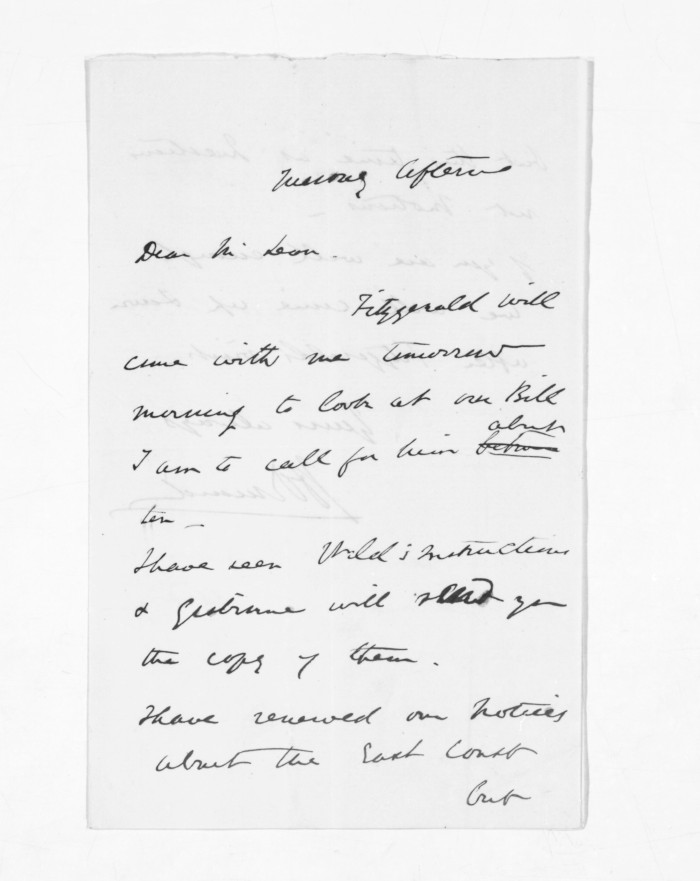 Afternoon
Dear McLean.
Fitzgerald will
come with me tomorrow
morning to look at our Bill
I am to call for him between about
ten _
I have seen Wild's instructions
& Gisborne will send you
the copy of them.
I have renewed our notices
about the East Coast
but